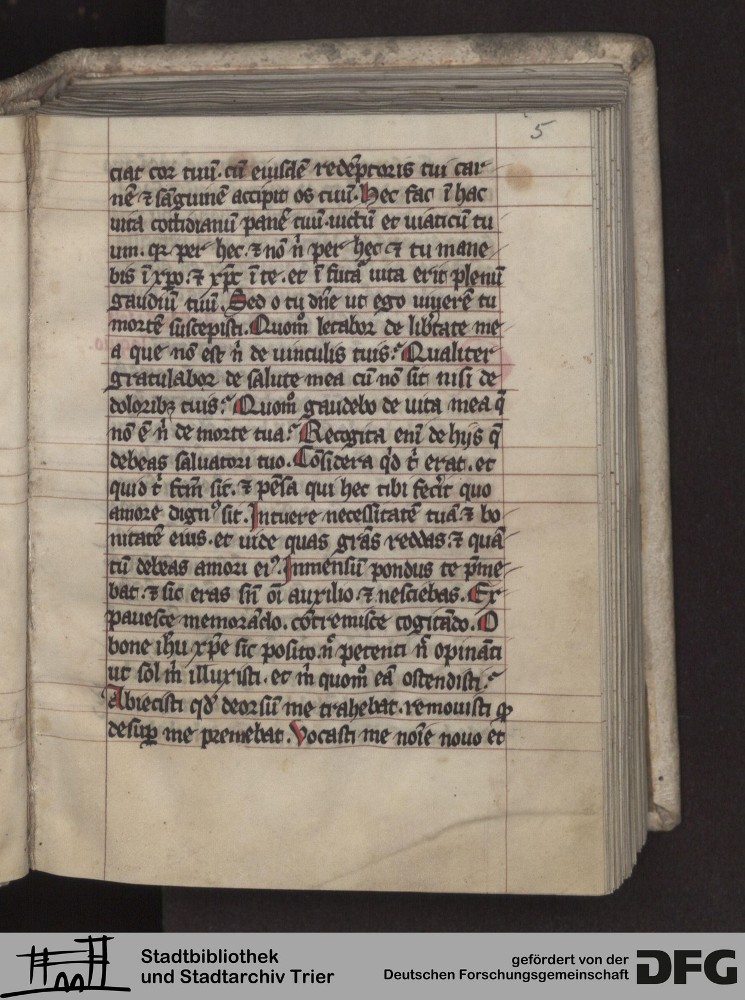 5
ciat cor tuū. cū eiusdē redēptoris tui car
nē ⁊ sāguinē accipit os tuū. Hec fac ī hac
uita cottidianū panē tuū. uictū et uiaticū tu
um. qr per hec. ⁊ nō n̄ per hec ⁊ tu mane
bis ī xp̄o. ⁊ xp̄c ī te. et ī futā uita erit plenū
gaudiū tuū. Sed o tu dn̄e ut ego uiuerē tu
mortē suscepisti. Quom̊ letabor de lib̄tate me
a que nō est n̄ de uinculis tuis. Qualiter
gratulabor de salute mea cū nō sit nisi de
doloribꝫ tuis. Quom̊ gaudebo de uita mea q̄
nō ē n̄ de morte tua. Recogita enī de hijs q̄
debeas saluatori tuo. Cōsidera qd̄ t̄ erat. et
quid t̄ fc̄m sit. ⁊ pēsa qui hec tibi fecit quo
amore dignꝰ sit. Intuere necessitatē tuā. ⁊ bo
nitatē eius. et uide quas grās reddas. ⁊ quā
tū debeas amori eiꝰ. Inmensū pondus te p̄me
bat. ⁊ sic eras sn̄ oī auxilio. ⁊ nesciebas. Ex
pauesce memorādo. cōtremisce cogitādo. O
bone ihū xp̄e sic posito. n̄ petenti n̄ opināti
ut sol m̄ illuxisti. et m̄ quom̊ eā ostendisti.
Abiecisti qd̄ deorsū me trahebat. remouisti ꝙ
desuꝑ me premebat. Vocasti me noīe nouo et
Stadtbibliothek
und Stadtarchiv Trier
gefördert von der
Deutschen Forschungsgemeinschaft
DFG